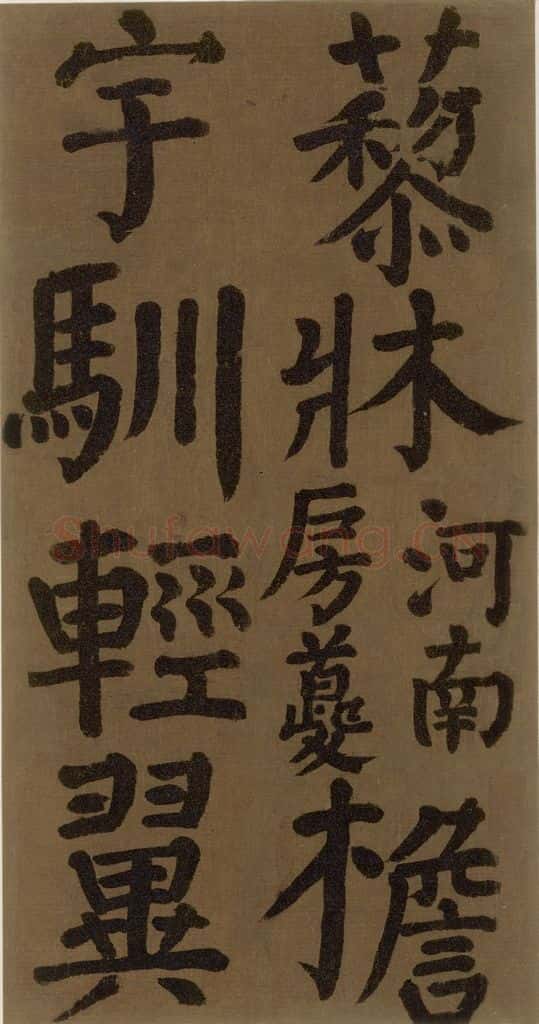 藜牀
河南
房夔
檐
宇馴輕翼
Shufawang.CN